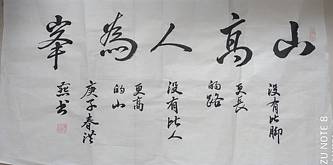 山高人為峯
没有比脚
更長
的路
没有比人
更高
的山
庚子春洪
熙书
ZU NOTE 8